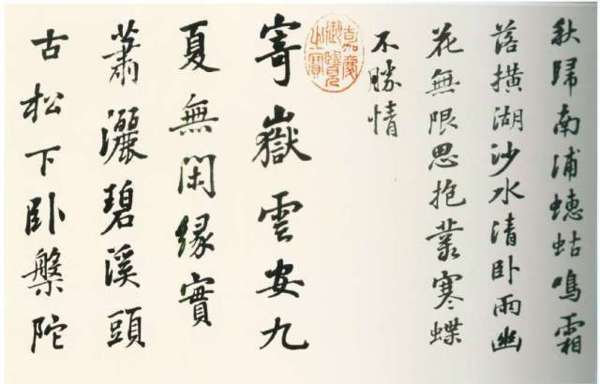 秋歸南浦蟪蛄鳴霜
落橫湖沙水清臥雨幽
花無限思抱叢寒蝶
不勝情
嘉慶御覽之寶
寄嶽雲安九
夏無閑緣實
蕭灑碧溪頭
古松下臥槃陀